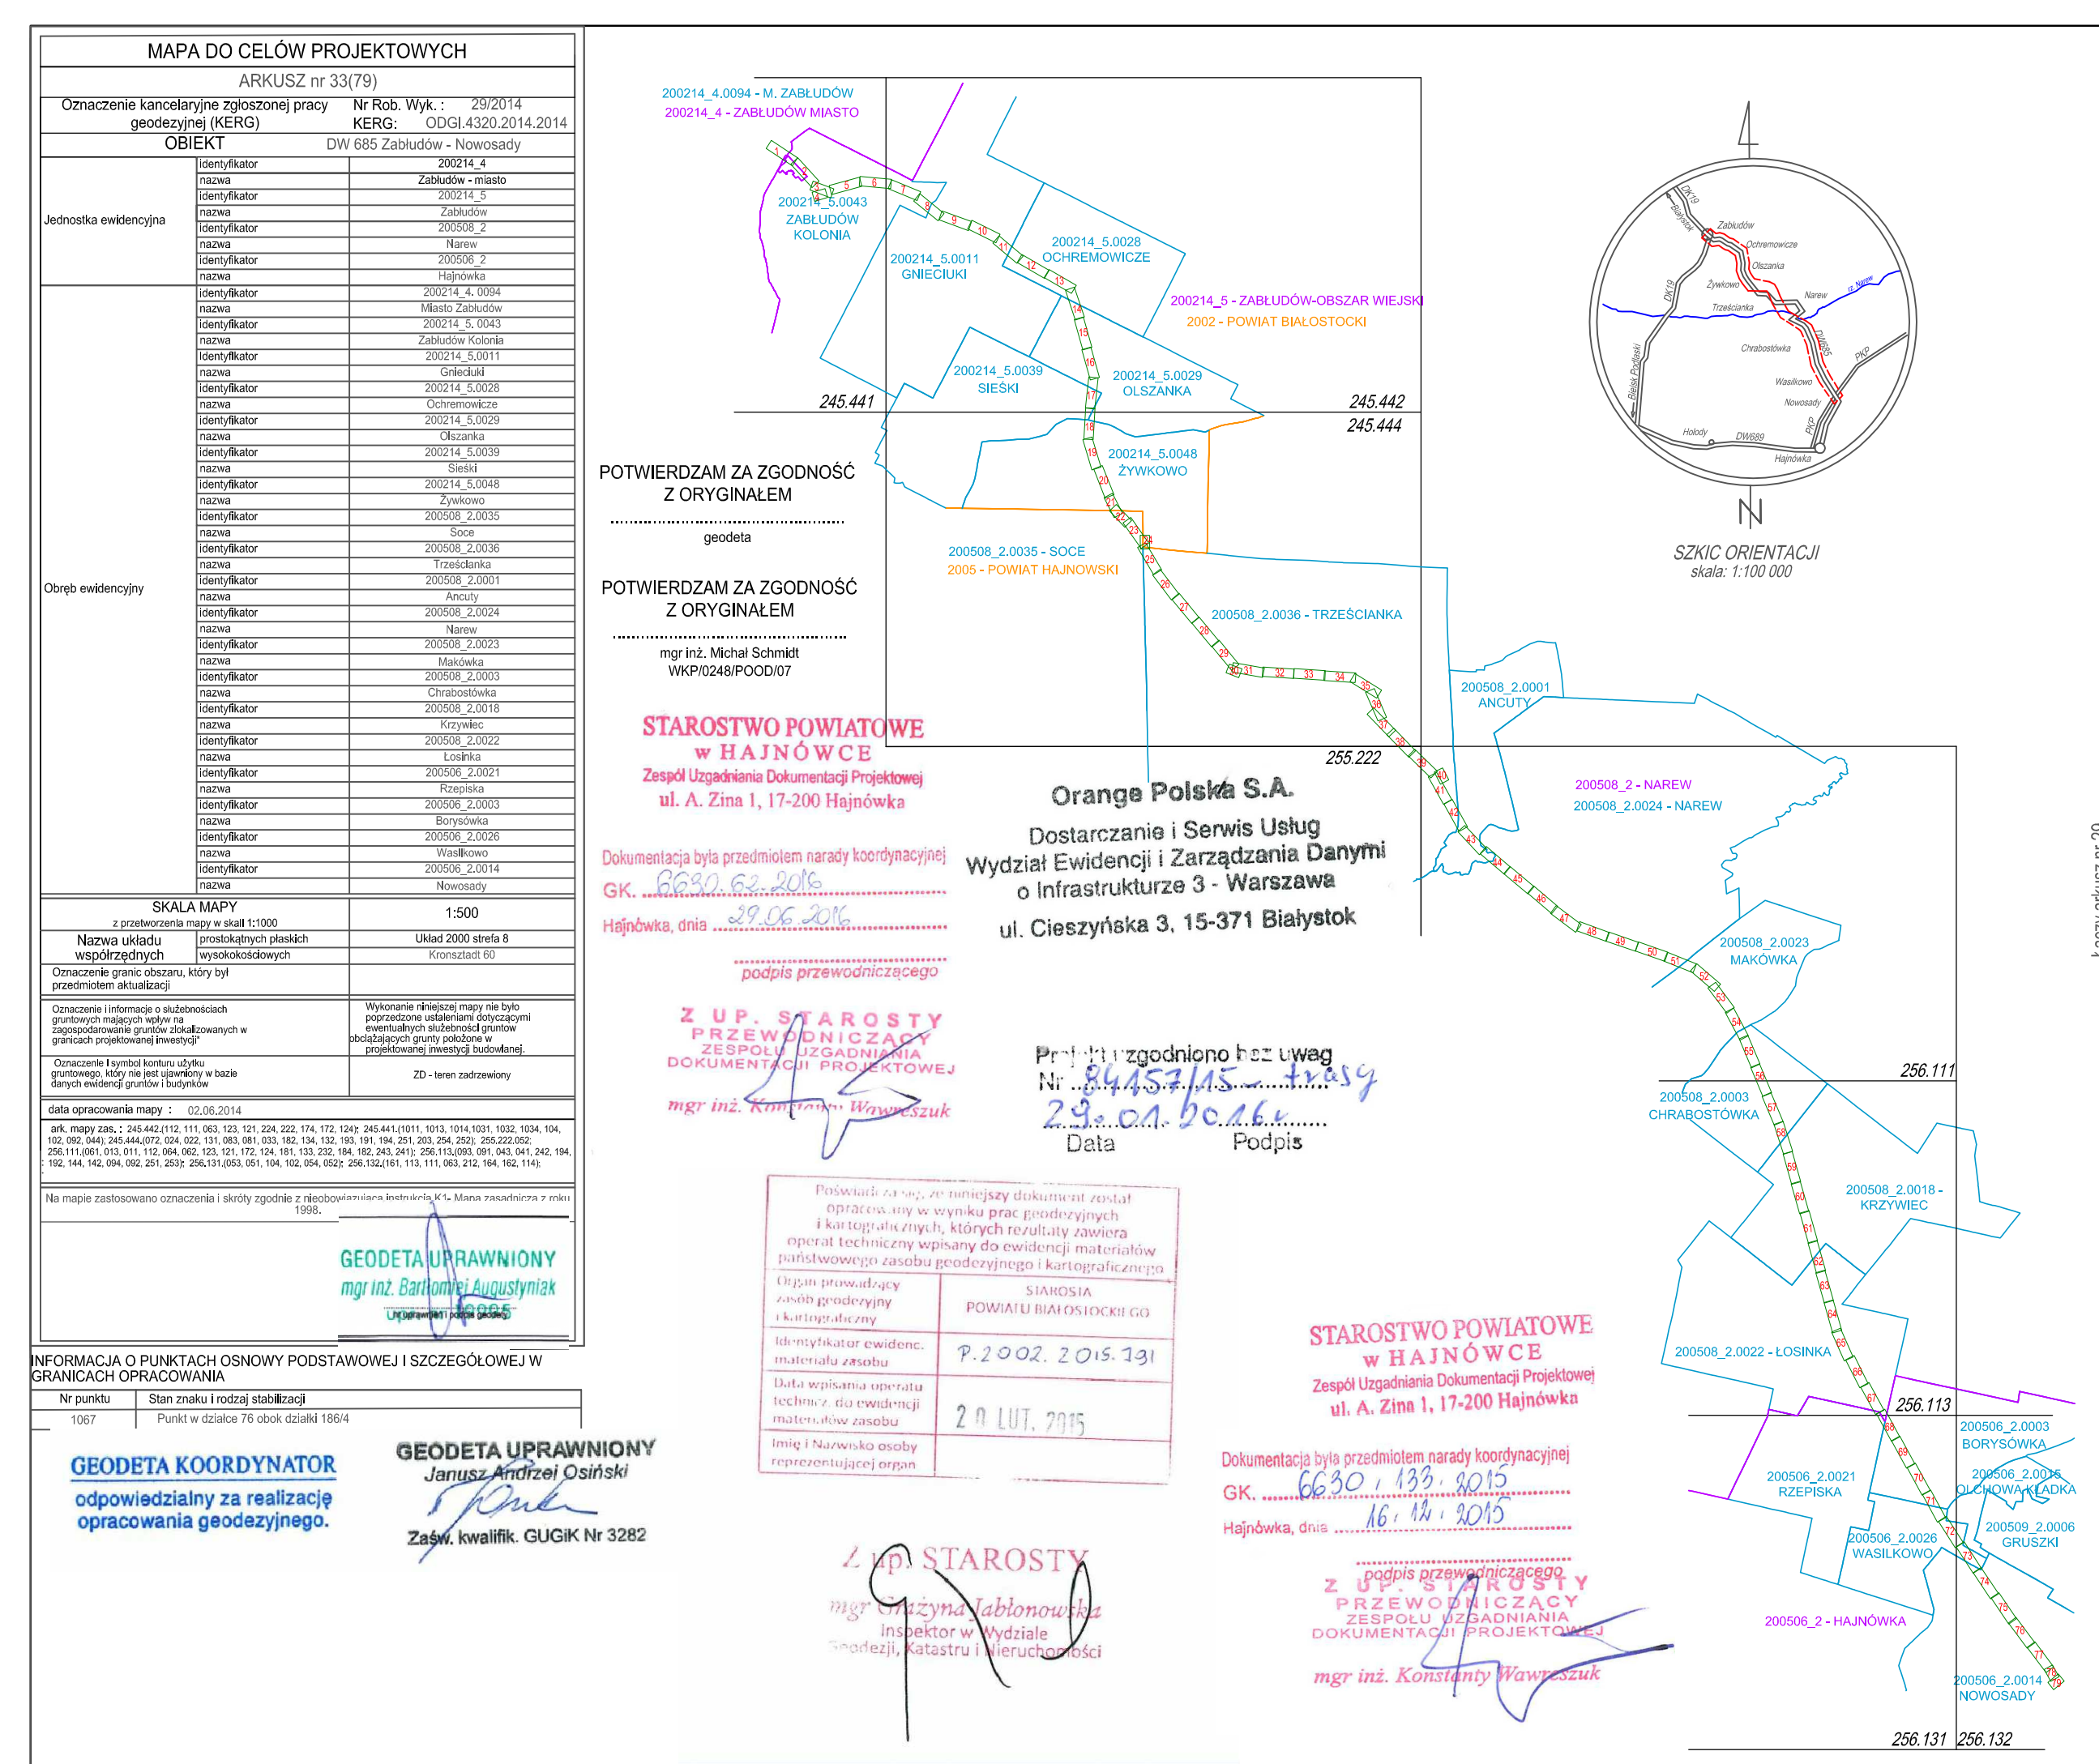 MAPA DO CELÓW PROJEKTOWYCH
ARKUSZ nr 33(79)
Oznaczenie kancelaryjne zgłoszonej pracy geodezyjnej (KERG)
Nr Rob. Wyk. : 29/2014
KERG: ODGI.4320.2014.2014
OBIEKT DW 685 Zabłudów - Nowosady
Jednostka ewidencyjna
identyfikator 200214_4
nazwa Zabłudów - miasto
identyfikator 200214_5
nazwa Zabłudów
identyfikator 200508_2
nazwa Narew
identyfikator 200506_2
nazwa Hajnówka
Obręb ewidencyjny
identyfikator 200214_4. 0094
nazwa Miasto Zabłudów
identyfikator 200214_5. 0043
nazwa Zabłudów Kolonia
identyfikator 200214_5.0011
nazwa Gnieciuki
identyfikator 200214_5.0028
nazwa Ochremowicze
identyfikator 200214_5.0029
nazwa Olszanka
identyfikator 200214_5.0039
nazwa Sieśki
identyfikator 200214_5.0048
nazwa Żywkowo
identyfikator 200508_2.0035
nazwa Soce
identyfikator 200508_2.0036
nazwa Trześcianka
identyfikator 200508_2.0001
nazwa Ancuty
identyfikator 200508_2.0024
nazwa Narew
identyfikator 200508_2.0023
nazwa Makówka
identyfikator 200508_2.0003
nazwa Chrabostówka
identyfikator 200508_2.0018
nazwa Krzywiec
identyfikator 200508_2.0022
nazwa Łosinka
identyfikator 200506_2.0021
nazwa Rzepiska
identyfikator 200506_2.0003
nazwa Borysówka
identyfikator 200506_2.0026
nazwa Wasilkowo
identyfikator 200506_2.0014
nazwa Nowosady
SKALA MAPY
z przetworzenia mapy w skali 1:1000
1:500
Nazwa układu współrzędnych
prostokątnych płaskich Układ 2000 strefa 8
wysokokościowych Kronsztadt 60
Oznaczenie granic obszaru, który był
przedmiotem aktualizacji
Oznaczenie i informacje o służebnościach
gruntowych mających wpływ na
zagospodarowanie gruntów zlokalizowanych w
granicach projektowanej inwestycji*
Wykonanie niniejszej mapy nie było
poprzedzone ustaleniami dotyczącymi
ewentualnych służebności gruntow
obciążających grunty położone w
projektowanej inwestycji budowlanej.
Oznaczenie i symbol konturu użytku
gruntowego, który nie jest ujawniony w bazie
danych ewidencji gruntów i budynków
ZD - teren zadrzewiony
data opracowania mapy : 02.06.2014
ark. mapy zas. : 245.442.(112, 111, 063, 123, 121, 224, 222, 174, 172, 124); 245.441.(1011, 1013, 1014,1031, 1032, 1034, 104,
102, 092, 044); 245.444.(072, 024, 022, 131, 083, 081, 033, 182, 134, 132, 193, 191, 194, 251, 203, 254, 252); 255.222.052;
256.111.(061, 013, 011, 112, 064, 062, 123, 121, 172, 124, 181, 133, 232, 184, 182, 243, 241); 256.113.(093, 091, 043, 041, 242, 194,
192, 144, 142, 094, 092, 251, 253); 256.131.(053, 051, 104, 102, 054, 052); 256.132.(161, 113, 111, 063, 212, 164, 162, 114);
Na mapie zastosowano oznaczenia i skróty zgodnie z nieobowiązującą instrukcją K1- Mapa zasadnicza z roku
1998.
GEODETA UPRAWNIONY
mgr inż. Bartłomiej Augustyniak
nr uprawnień i podpis geodety
INFORMACJA O PUNKTACH OSNOWY PODSTAWOWEJ I SZCZEGÓŁOWEJ W
GRANICACH OPRACOWANIA
Nr punktu Stan znaku i rodzaj stabilizacji
1067 Punkt w działce 76 obok działki 186/4
GEODETA KOORDYNATOR
odpowiedzialny za realizację
opracowania geodezyjnego.
GEODETA UPRAWNIONY
Janusz Andrzej Osiński
Zaśw. kwalifik. GUGiK Nr 3282
POTWIERDZAM ZA ZGODNOŚĆ
Z ORYGINAŁEM
geodeta
POTWIERDZAM ZA ZGODNOŚĆ
Z ORYGINAŁEM
mgr inż. Michał Schmidt
WKP/0248/POOD/07
STAROSTWO POWIATOWE
w HAJNÓWCE
Zespół Uzgadniania Dokumentacji Projektowej
ul. A. Zina 1, 17-200 Hajnówka
Dokumentacja była przedmiotem narady koordynacyjnej
GK. 6630.62.2016
Hajnówka, dnia 29.06.2016
podpis przewodniczącego
Z UP. STAROSTY
PRZEWODNICZĄCY
ZESPOŁU UZGADNIANIA
DOKUMENTACJI PROJEKTOWEJ
mgr inż. Konstanty Wawreszuk
Orange Polska S.A.
Dostarczanie i Serwis Usług
Wydział Ewidencji i Zarządzania Danymi
o Infrastrukturze 3 - Warszawa
ul. Cieszyńska 3, 15-371 Białystok
Projekt uzgodniono bez uwag
Nr 84157/15 - trasy
29.01.2016r.
Data Podpis
Poświadcza się, że niniejszy dokument został
opracowany w wyniku prac geodezyjnych
i kartograficznych, których rezultaty zawiera
operat techniczny wpisany do ewidencji materiałów
państwowego zasobu geodezyjnego i kartograficznego
Organ prowadzący
zasób geodezyjny
i kartograficzny
STAROSTA
POWIATU BIAŁOSTOCKIEGO
Identyfikator ewidenc.
materiału zasobu
P.2002.2015.791
Data wpisania operatu
technicz. do ewidencji
materiałów zasobu
20 LUT. 2015
Imię i Nazwisko osoby
reprezentującej organ
Z up. STAROSTY
mgr Grażyna Jabłonowska
Inspektor w Wydziale
Geodezji, Katastru i Nieruchomości
STAROSTWO POWIATOWE
w HAJNÓWCE
Zespół Uzgadniania Dokumentacji Projektowej
ul. A. Zina 1, 17-200 Hajnówka
Dokumentacja była przedmiotem narady koordynacyjnej
GK. 6630.133.2015
Hajnówka, dnia 16.12.2015
podpis przewodniczącego
Z UP. STAROSTY
PRZEWODNICZĄCY
ZESPOŁU UZGADNIANIA
DOKUMENTACJI PROJEKTOWEJ
mgr inż. Konstanty Wawreszuk
200214_4.0094 - M. ZABŁUDÓW
200214_4 - ZABŁUDÓW MIASTO
200214_5.0043
ZABŁUDÓW
KOLONIA
200214_5.0011
GNIECIUKI
200214_5.0028
OCHREMOWICZE
200214_5 - ZABŁUDÓW-OBSZAR WIEJSKI
2002 - POWIAT BIAŁOSTOCKI
200214_5.0039
SIEŚKI
200214_5.0029
OLSZANKA
245.441
245.442
245.444
200214_5.0048
ŻYWKOWO
200508_2.0035 - SOCE
2005 - POWIAT HAJNOWSKI
200508_2.0036 - TRZEŚCIANKA
200508_2.0001
ANCUTY
255.222
200508_2 - NAREW
200508_2.0024 - NAREW
200508_2.0023
MAKÓWKA
256.111
200508_2.0003
CHRABOSTÓWKA
200508_2.0018 -
KRZYWIEC
200508_2.0022 - ŁOSINKA
256.113
200506_2.0003
BORYSÓWKA
200506_2.0021
RZEPISKA
200506_2.0015
OLCHOWA KŁADKA
200509_2.0006
GRUSZKI
200506_2.0026
WASILKOWO
200506_2 - HAJNÓWKA
200506_2.0014
NOWOSADY
256.131
256.132
1 2 3 4 5 6 7 8 9 10 11 12 13 14 15 16 17 18 19 20 21 22 23 24 25 26 27 28 29 30 31 32 33 34 35 36 37 38 39 40 41 42 43 44 45 46 47 48 49 50 51 52 53 54 55 56 57 58 59 60 61 62 63 64 65 66 67 68 69 70 71 72 73 74 75 76 77 78 79
DK19
Białystok
Zabłudów
Ochremowicze
Olszanka
Żywkowo
Narew
rz. Narew
DK19
Trześcianka
Chrabostówka
DW685
PKP
Wasilkowo
Nowosady
Bielsk Podlaski
Hołody
DW689
PKP
Hajnówka
N
SZKIC ORIENTACJI
skala: 1:100 000